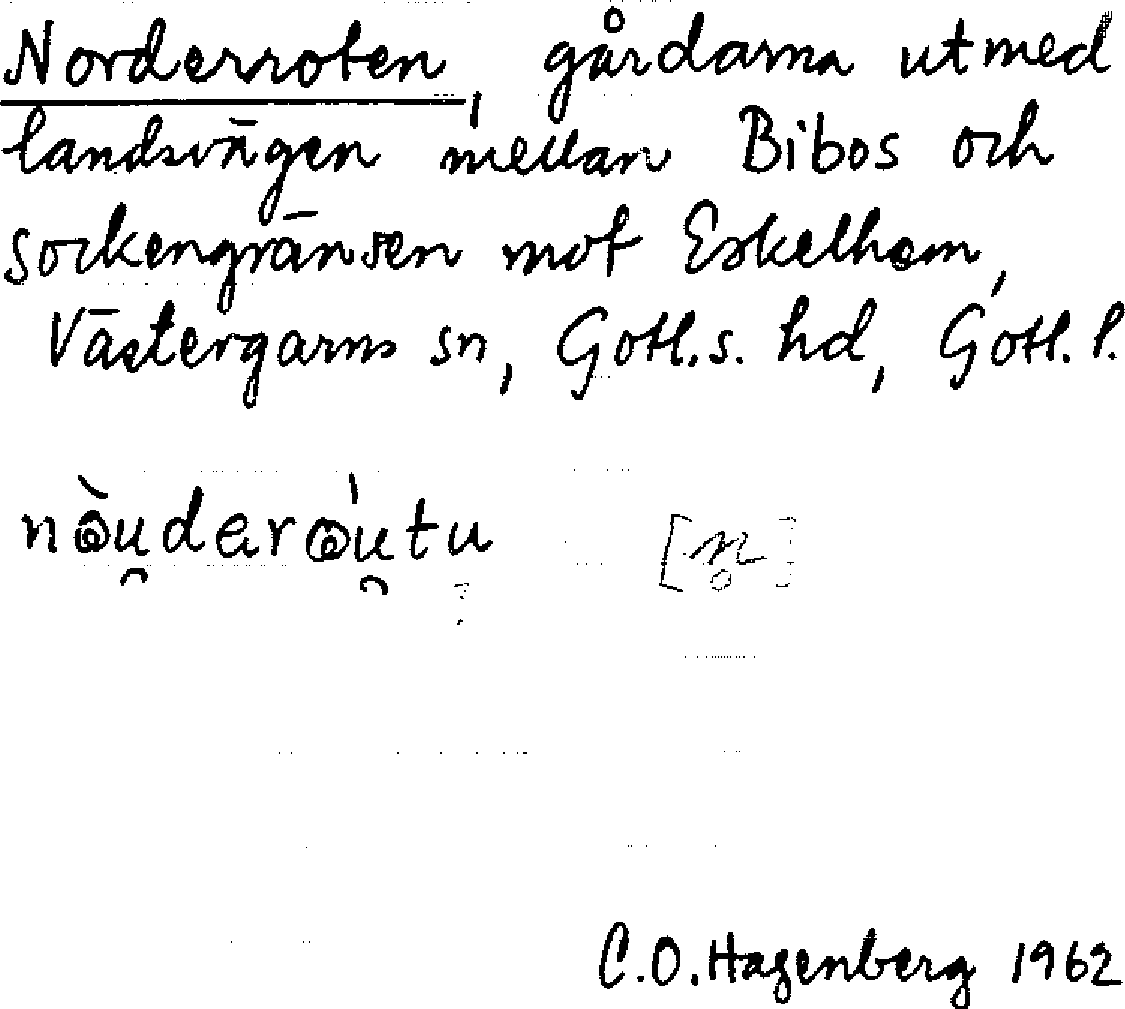 Norderroten, gårdarna utmed
landsvägen mellan Bibos och
sockengränsen mot Eskelhem,
Västergarns sn, Gotl.s. hd, Gotl. l.
nò̤u̯derò̤u̯tu [n̥]
?
C.O. Hagenberg 1962